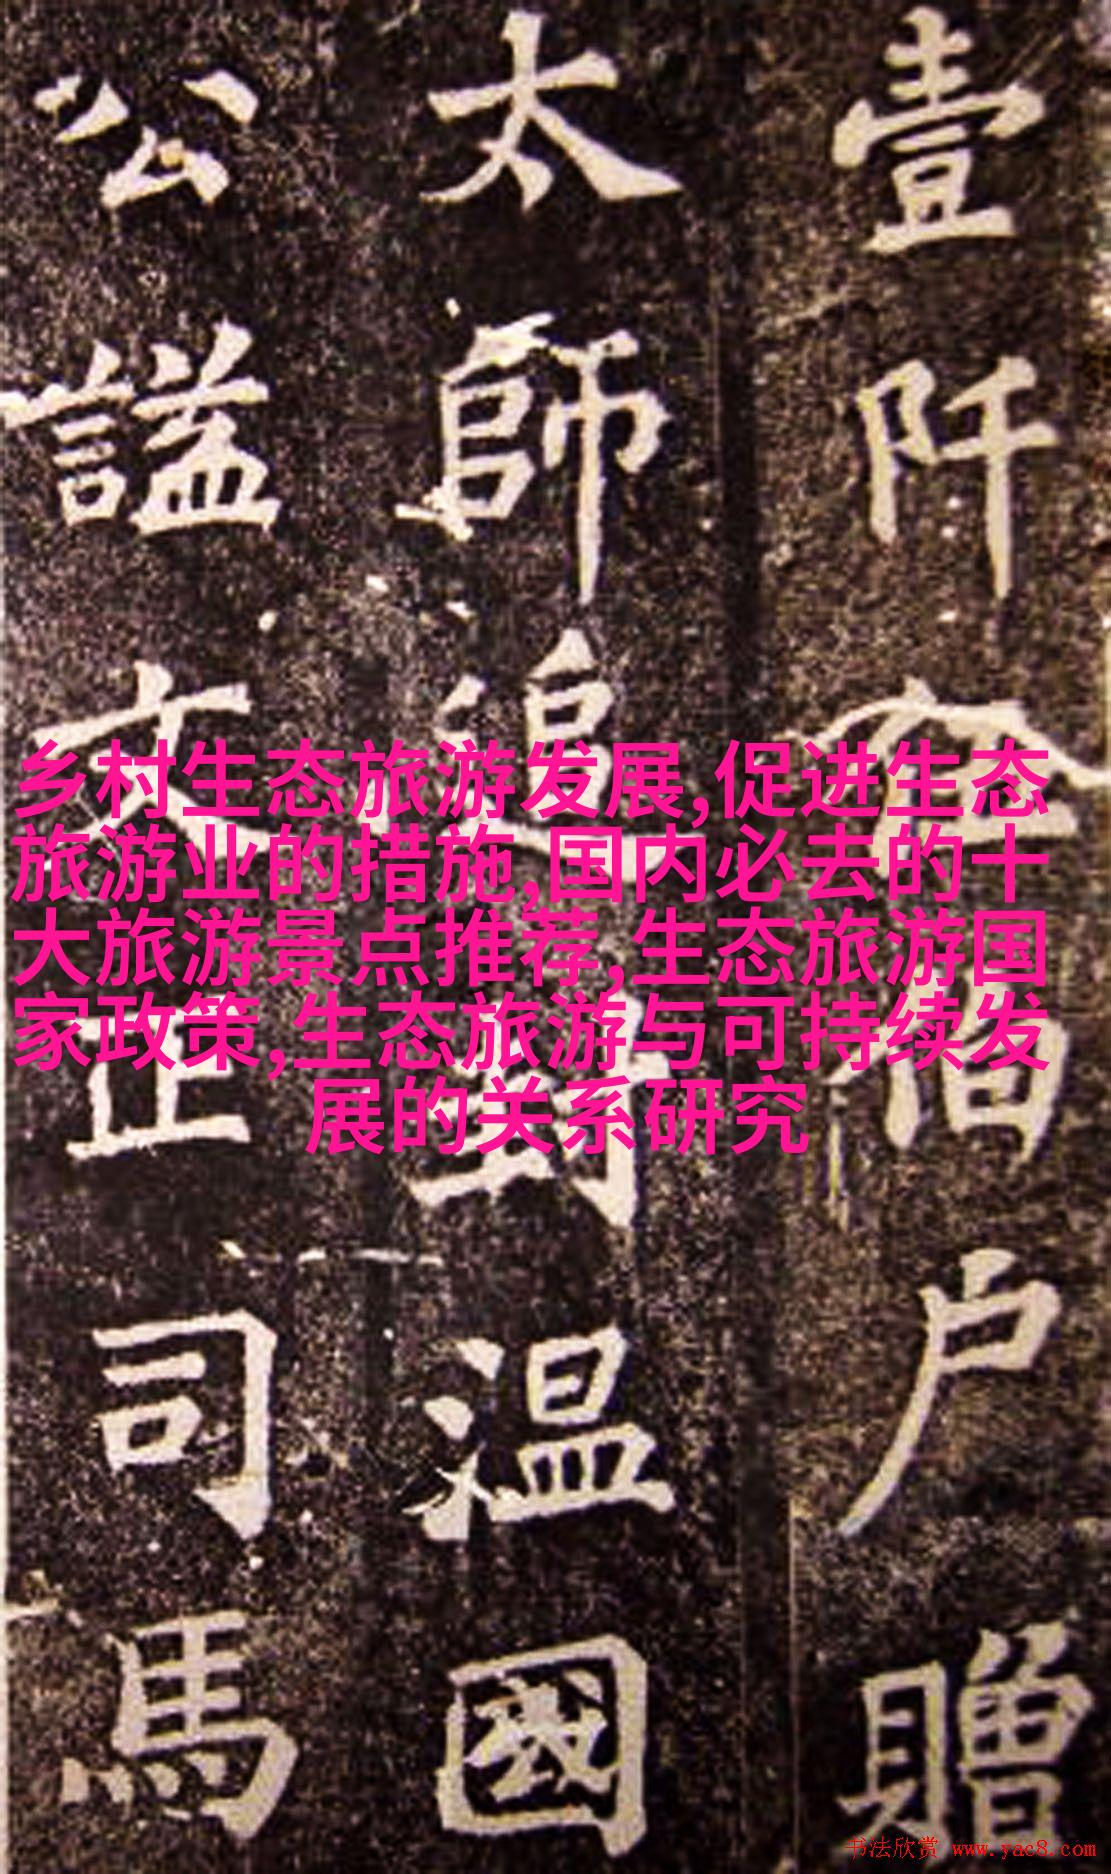 壹阡
户贈
太師追封温國
公謚文正司馬
乡村生态旅游发展,促进生态
旅游业的措施,国内必去的十
大旅游景点推荐,生态旅游国
家政策,生态旅游与可持续发
展的关系研究
书法欣赏 www.yac8.com